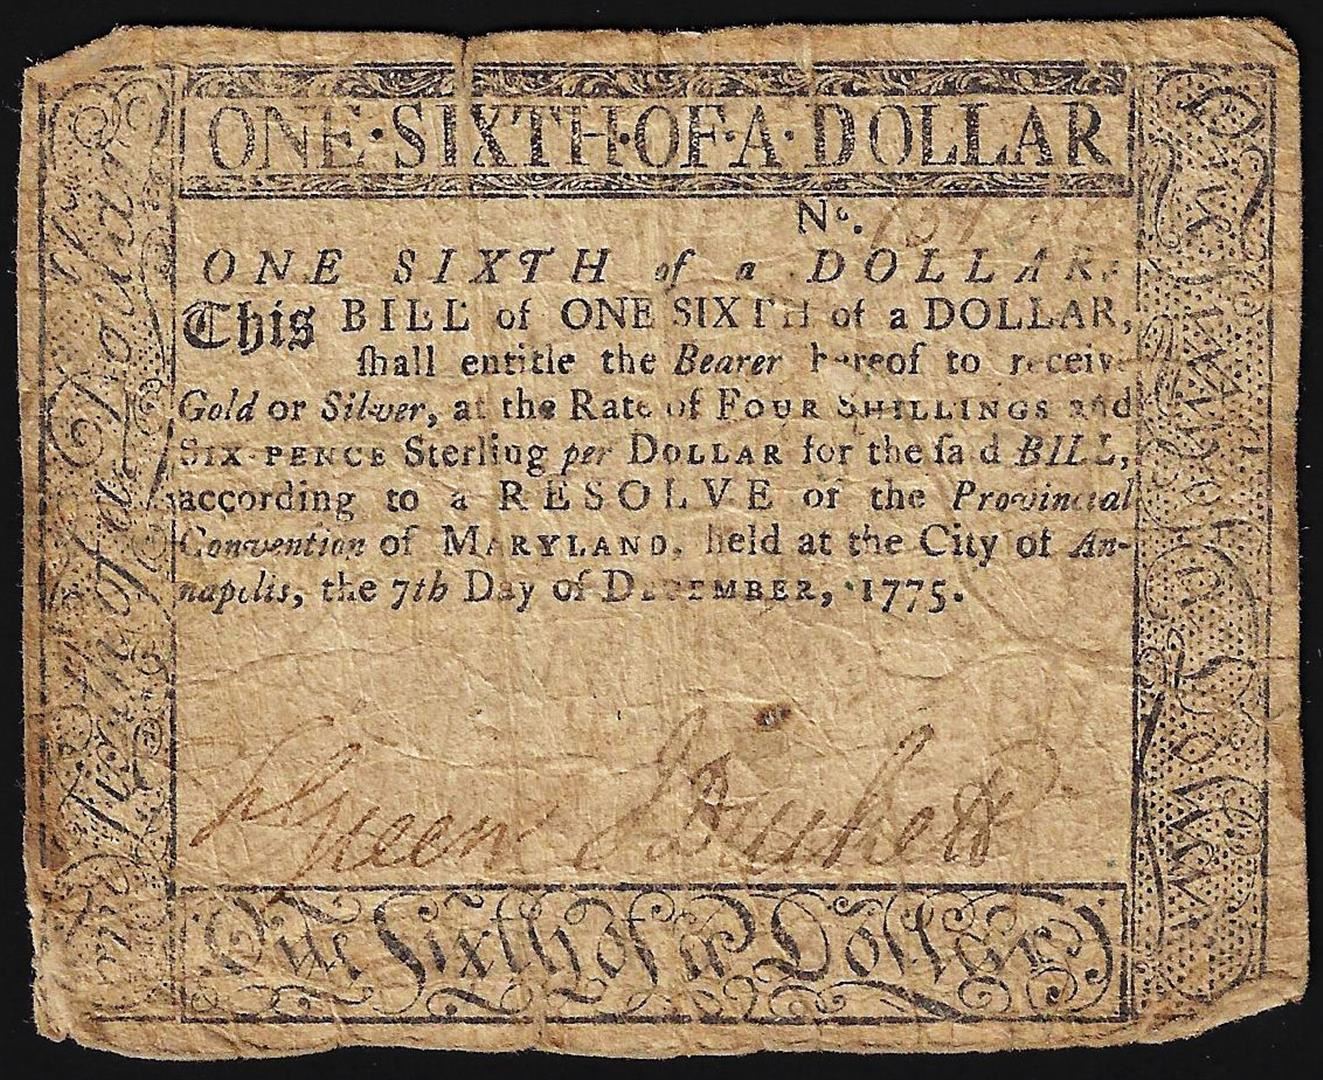 ONE·SIXTH·OF·A·DOLLAR
No.
ONE SIXTH of a DOLLAR.
This BILL of ONE SIXTH of a DOLLAR,
ſhall entitle the Bearer hereof to receive
Gold or Silver, at the Rate of FOUR SHILLINGS and
SIX-PENCE Sterling per DOLLAR for the ſaid BILL,
according to a RESOLVE of the Provincial
Convention of MARYLAND, held at the City of An-
napolis, the 7th Day of DECEMBER, 1775.
Green J Duckett
One Sixth of a Dollar
One Sixth of a Dollar